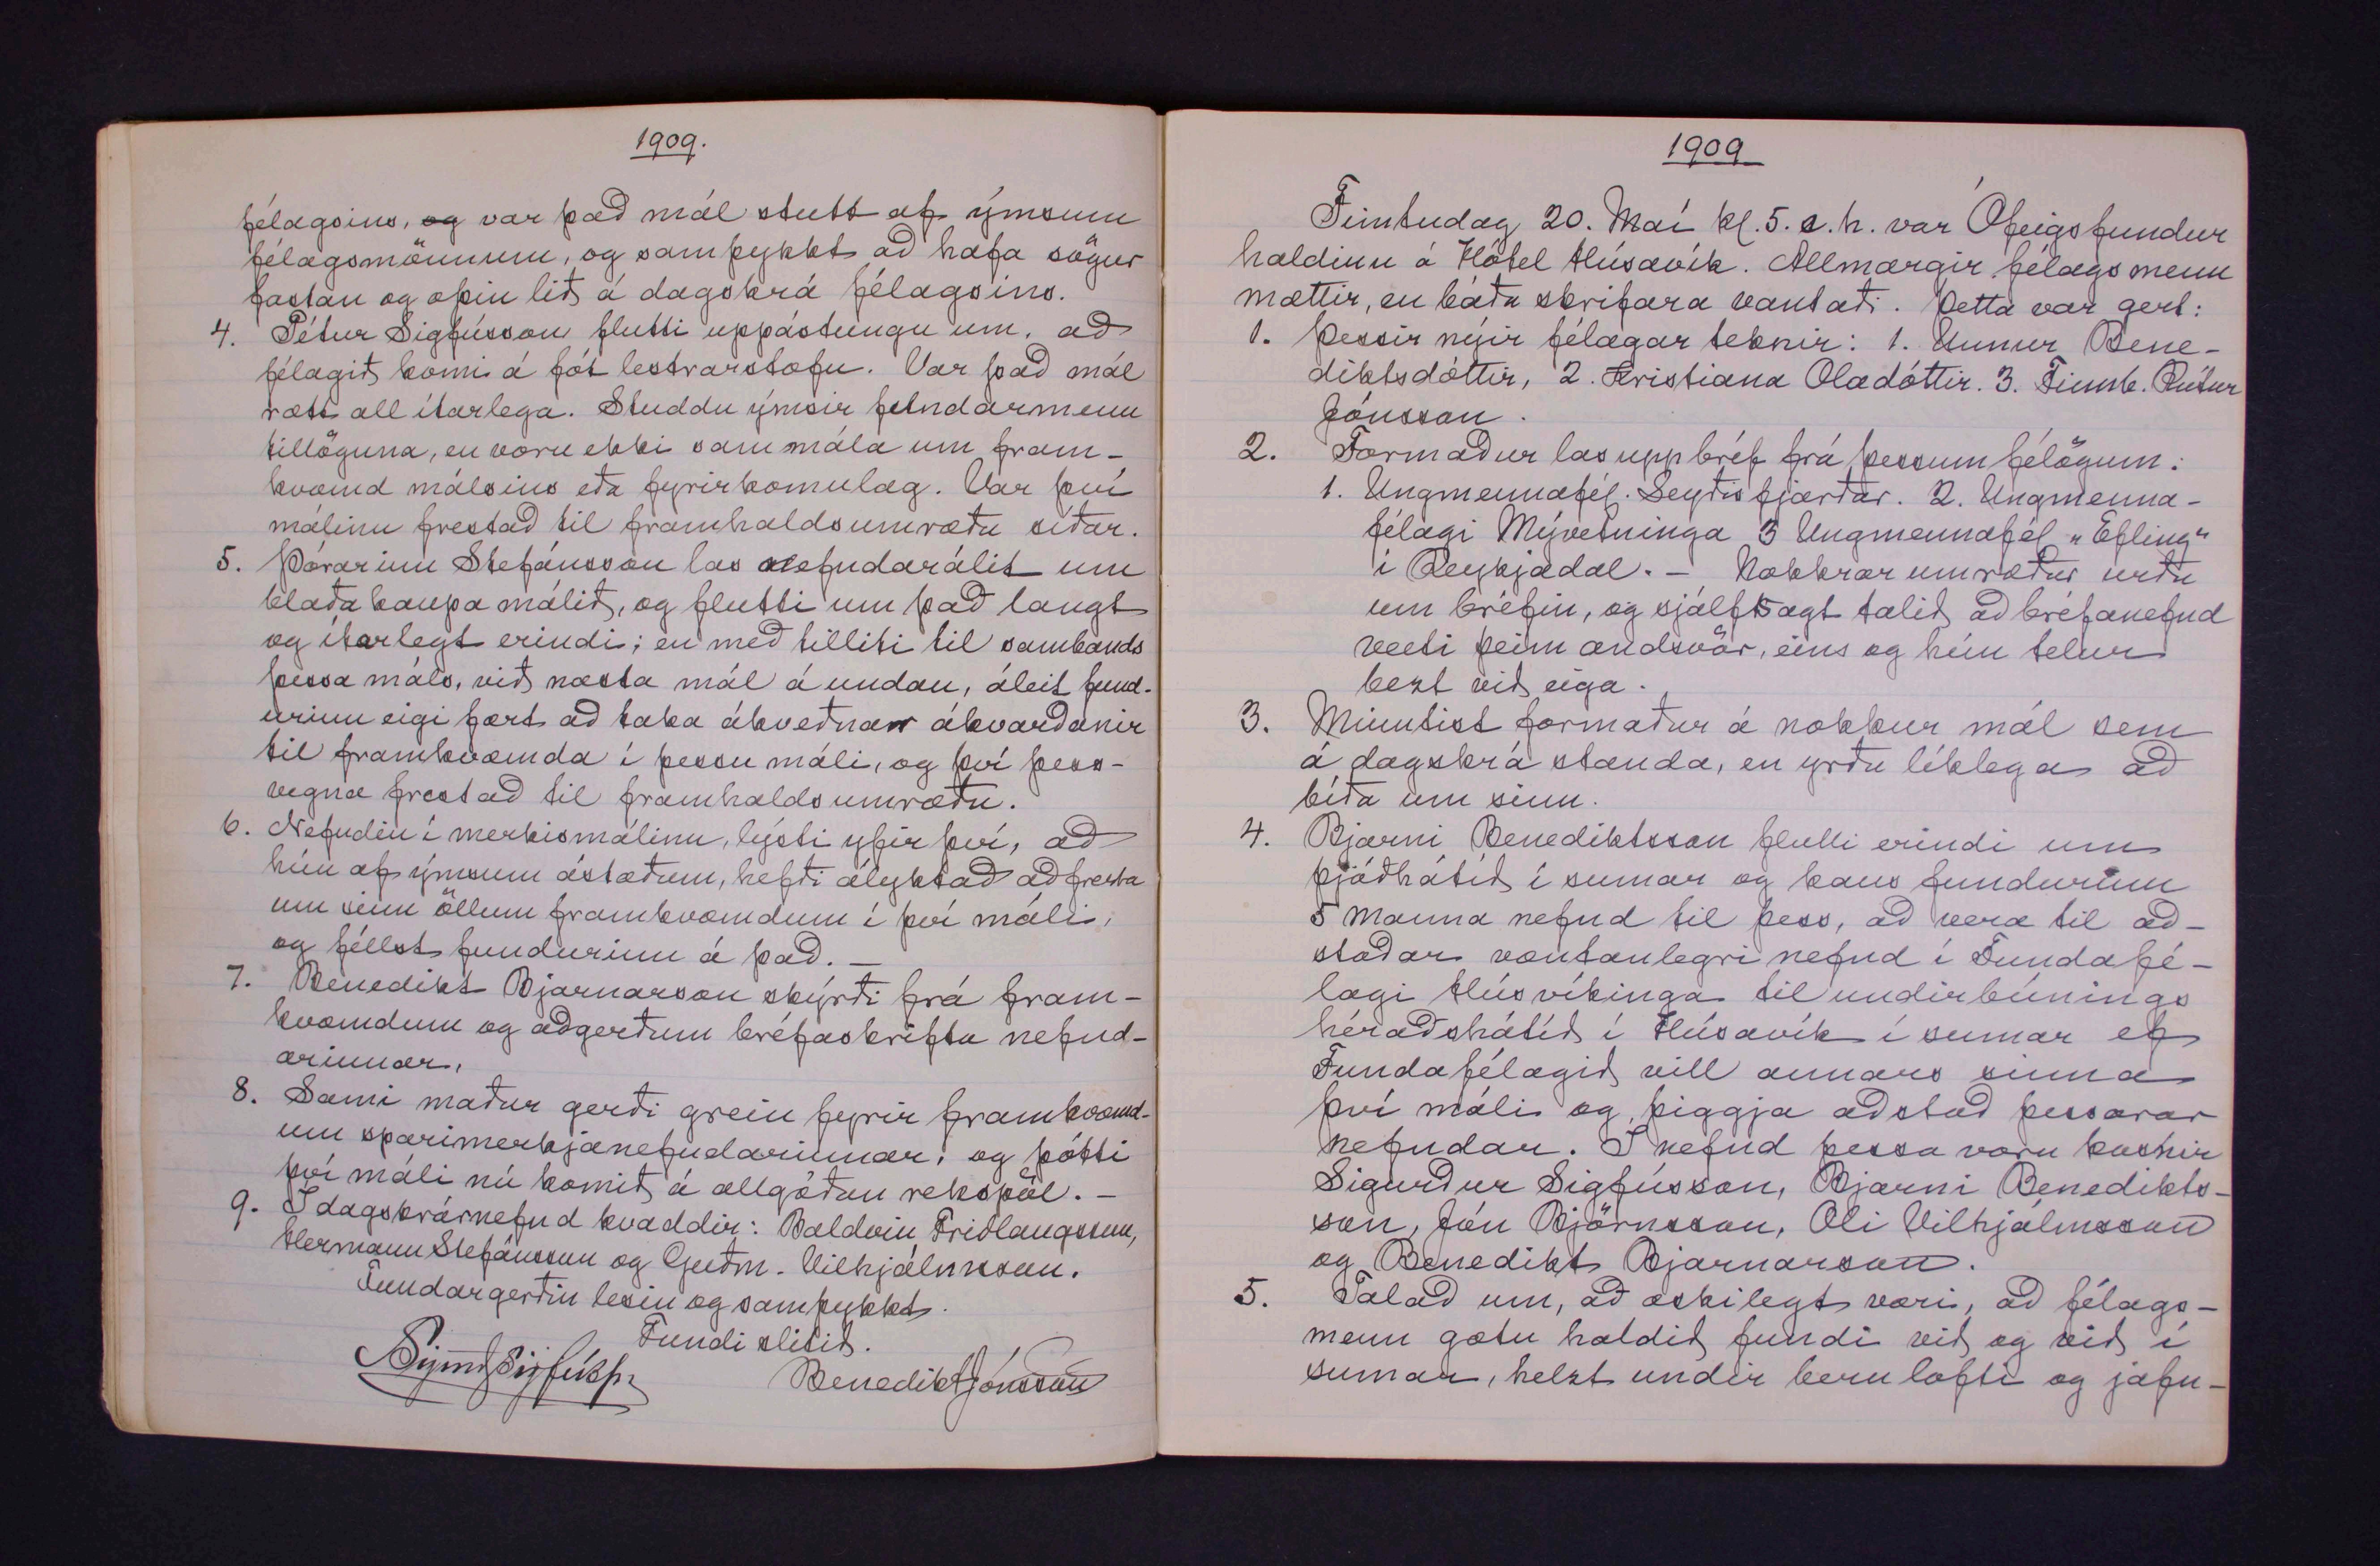 1909.
félagsins, og var það mál stutt af ýmsum
félagsmönnum, og samþykkt að hafa sögur
fastan og opin lið á dagskrá félagsins.
4. Pétur Sigfússon flutti uppástungu um, að
félagið komi á fót lestrarstofu. Var það mál
rætt all ítarlega. Studdu ýmsir fundarmenn
tillöguna, en voru ekki sammála um fram-
kvæmd málsins eða fyrirkomulag. Var því
málinu frestað til framhaldsumræðu síðar.
5. Þórarinn Stefánsson las nefndarálit um
blaðakaupamálið, og flutti um það langt
og ítarlegt erindi; en með tilliti til sambands
þessa máls, við næsta mál á undan, áleit fund-
urinn eigi fært að taka ákveðnar ákvarðanir
til framkvæmda í þessu máli, og því þess-
vegna frestað til framhaldsumræðu.
6. Nefndin í merkismálinu, lýsti yfir því, að
hún af ýmsum ástæðum, hefði ályktað að fresta
um sinn öllum framkvæmdum í því máli,
og féllst fundurinn á það. —
7. Benedikt Bjarnarson skýrði frá fram-
kvæmdum og aðgerðum bréfaskrifta nefnd-
arinnar.
8. Sami maður gerði grein fyrir framkvæmd-
um sparimerkjanefndarinnar, og þótti
því máli nú komið á allgóðan rekspöl. —
9. Í dagskrárnefnd kvaddir: Baldvin Friðlaugsson,
Hermann Stefánsson og Guðm. Vilhjálmsson.
Fundargerðin lesin og samþykkt.
Fundi slitið.
Sigmd Sigfúss. Benedikt Jónsson
1909
Fimtudag 20. Maí kl. 5. e. h. var Ófeigsfundur
haldinn á Hótel Húsavík. Allmargir félagsmenn
mættir, en báða skrifara vantaði. Þetta var gert:
1. Þessir nýir félagar teknir: 1. Unnur Bene-
diktsdóttir, 2. Kristiana Oladóttir. 3. Finnb. Rútur
Jónsson.
2. Formaður las upp bréf frá þessum félögum:
1. Ungmennafél. Seyðisfjarðar. 2. Ungmenna-
félagi Mývetninga 3 Ungmennafél „Efling"
í Reykjadal. — Nokkrar umræður urðu
um bréfin, og sjálfsagt talið að bréfanefnd
veeti þeim andsvör, eins og hún telur
bezt við eiga.
3. Minntist formaður á nokkur mál sem
á dagskrá standa, en yrðu líklega að
bíða um sinn.
4. Bjarni Benediktsson flutti erindi um
þjóðhátíð í sumar og kaus fundurinn
5 manna nefnd til þess, að vera til að-
stoðar væntanlegri nefnd í Fundafé-
lagi Húsvíkinga til undirbúnings
héraðshátíð í Húsavík í sumar ef
Fundafélagið vill annars sinna
því máli og þiggja aðstoð þessarar
nefndar. Í nefnd þessa voru kosnir
Sigurður Sigfússon, Bjarni Benedikts-
son, Jón Björnsson, Oli Vilhjálmsson
og Benedikt Bjarnarson.
5. Talað um, að æskilegt væri, að félags-
menn gætu haldið fundi við og við í
sumar, helzt undir beru lofti og jafn-